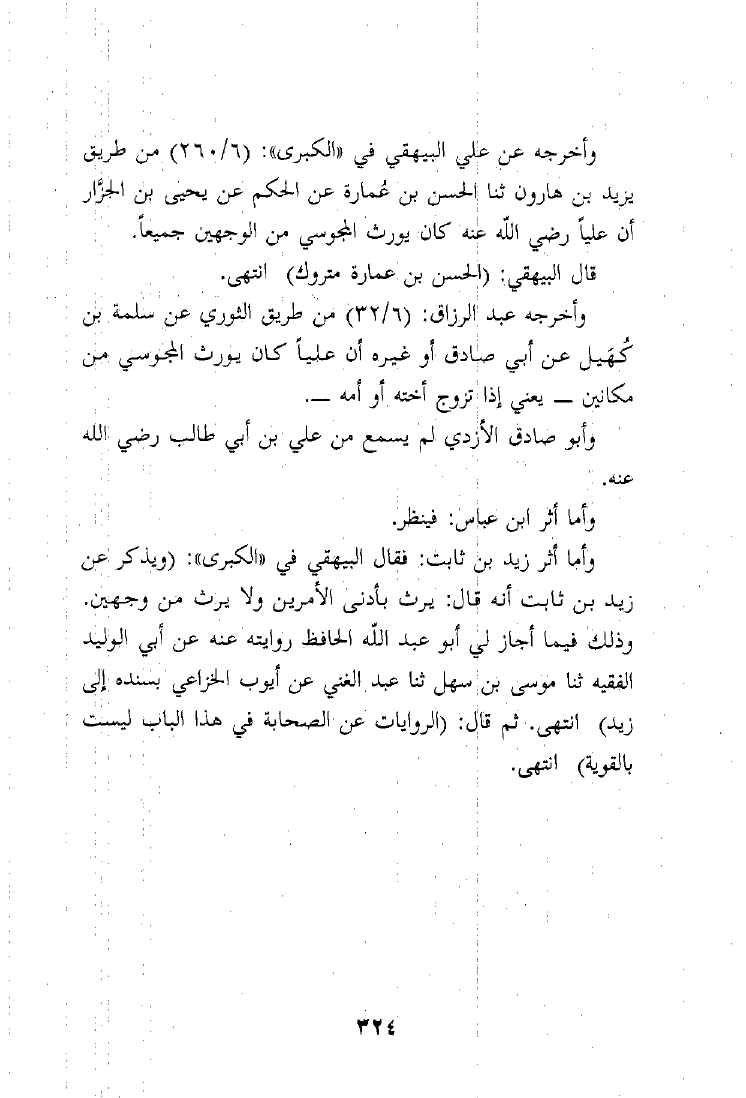 وأخرجه عن علي البيهقي في «الكبرى»: (٢٦٠/٦) من طريق
يزيد بن هارون ثنا الحسن بن عُمارة عن الحكم عن يحيى بن الجزَّار
أن علياً رضي الله عنه كان يورث المجوسي من الوجهين جميعاً.
قال البيهقي: (الحسن بن عمارة متروك) انتهى.
وأخرجه عبد الرزاق: (٣٢/٦) من طريق الثوري عن سلمة بن
كُهَيل عن أبي صادق أو غيره أن علياً كان يورث المجوسي من
مكانين ــ يعني إذا تزوج أخته أو أمه ــ.
وأبو صادق الأزدي لم يسمع من علي بن أبي طالب رضي الله
عنه.
وأما أثر ابن عباس: فينظر.
وأما أثر زيد بن ثابت: فقال البيهقي في «الكبرى»: (ويذكر عن
زيد بن ثابت أنه قال: يرث بأدنى الأمرين ولا يرث من وجهين.
وذلك فيما أجاز لي أبو عبد الله الحافظ روايته عنه عن أبي الوليد
الفقيه ثنا موسى بن سهل ثنا عبد الغني عن أيوب الخزاعي بسنده إلى
زيد) انتهى. ثم قال: (الروايات عن الصحابة في هذا الباب ليست
بالقوية) انتهى.
٣٢٤